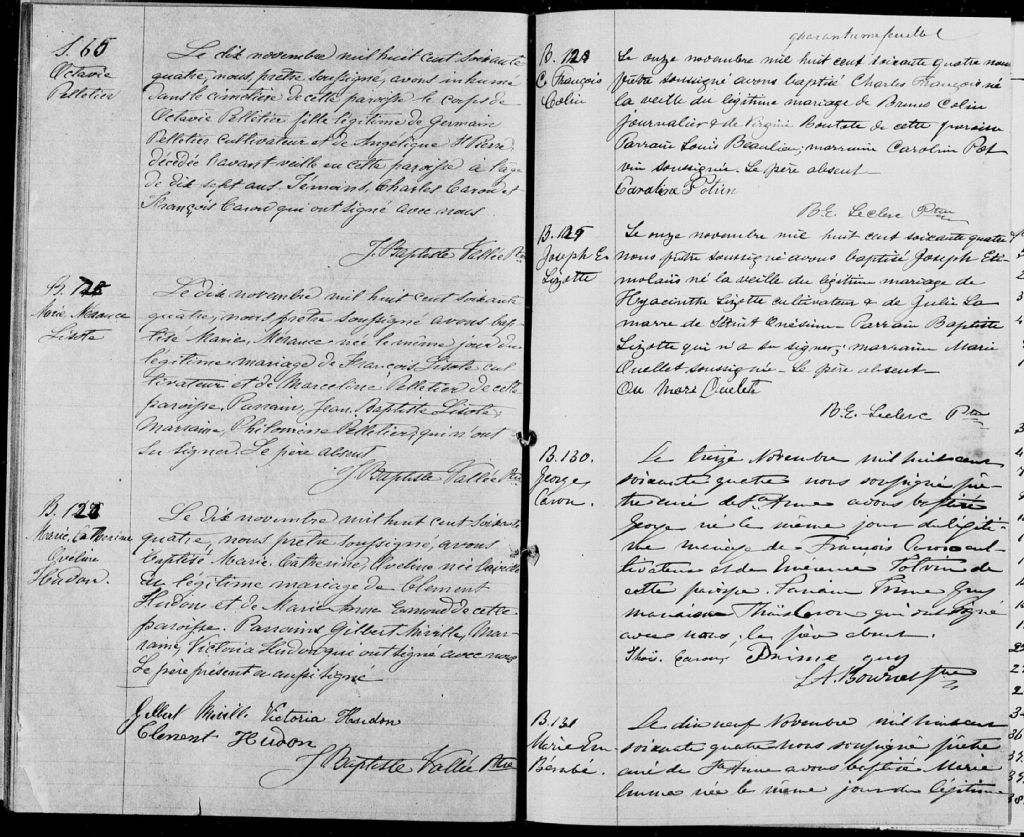 S. 65
Octavie
Pelletier
Le dix novembre mil huit cent soixante
quatre, nous, prêtre soussigné, avons inhumé
dans le cimetière de cette paroisse le corps de
Octavie Pelletier fille légitime de Germain
Pelletier cultivateur et de Angelique St Pierre
décédée l'avant veille en cette paroisse à l'âge
de dix sept ans. Témoins, Charles Caron et
François Caron qui ont signé avec nous
J. Baptiste Vallée Ptre
Marie Mérance
Lisote
Le dix novembre mil huit cent soixante
quatre, nous prêtre soussigné avons bap-
tisé Marie, Mérance née le même jour du
légitime mariage de François Lisote cul
tivateur et de Marceline Pelletier de cette
paroisse. Parrain, Jean Baptiste Lisote,
Marraine, Philomène Pelletier, qui n'ont
su signer. Le père absent
J Baptiste Vallée Ptre
B. 128
Marie, Catherine
Oveline
Hudon.
Le dix novembre mil huit cent soixante
quatre, nous prêtre soussigné, avons
baptisé Marie Catherine, Oveline née la veille
du légitime mariage de Clement
Hudon et de Marie Anne Emond de cette
paroisse. Parrains Gilbert Miville, Mar-
raine, Victoria Hudon qui ont signé avec nous
Le père présent a aussi signé
Gilbert Miville Victoria Hudon
Clement Hudon
J Baptiste Vallée Ptre
B. 128
C. François
Colin
Le onze novembre mil huit cent soixante quatre nous
prêtre soussigné avons baptisé Charles François né
la veille du légitime mariage de Bruno Colin
Journalier & de Virginie Boutote de cette paroisse
Parrain Louis Beaulieu; marraine Caroline Pot
vin soussignée. Le père absent
Caroline Potvin
B.E. Leclerc Ptre
B. 129
Joseph E-
Lizotte
Le onze novembre mil huit cent soixante quatre
nous prêtre soussigné avons baptisé Joseph Eti
molaüs né la veille du légitime mariage de
Hyacinthe Lizotte cultivateur & de Julie La
marre de Saint Onésime Parrain Baptiste
Lizotte qui n'a su signer; marraine Marie
Ouellet soussignée. Le père absent
Marie Ouelett
B.E. Leclerc Ptre
B. 130.
George
Caron.
Le treize Novembre mil huit cent
soixante quatre nous soussigné prê-
tre curé de Ste Anne avons baptisé
George né le même jour du légiti-
me mariage de François Caron cul-
tivateur et de Emerence Potvin de
cette paroisse. Parrain Prime Guy
marraine Thaïs Caron qui ont signé
avec nous; le père absent.
Thaïs. Caron Prime guy
L A. Bourret Ptre
B. 131
Marie Em
Bérubé.
Le dix neuf Novembre mil huit cent
soixante quatre nous soussigné prêtre
curé de Ste Anne avons baptisé Marie
Emma née le même jour du légitime